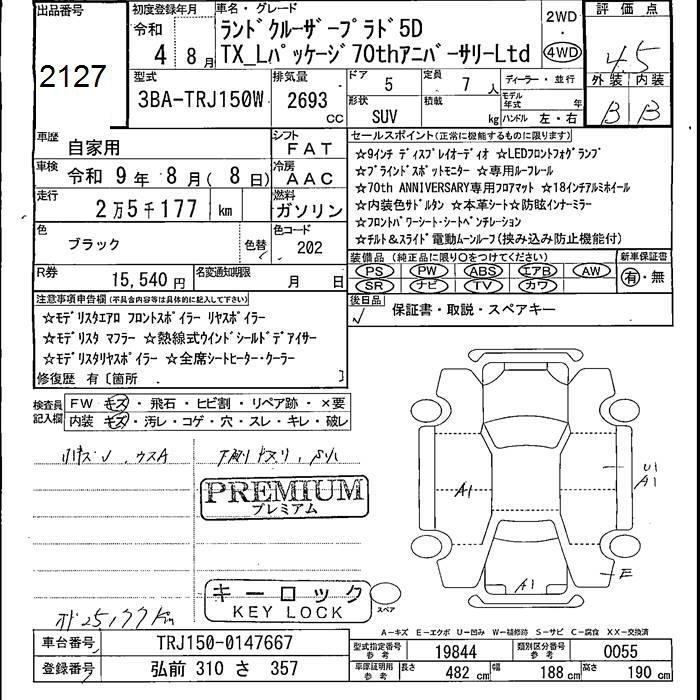 出品番号
2127
初度登録年月
令和
4 8月
車名・グレード
ランドクルーザープラド5D
TX_Lパッケージ70thアニバーサリーLtd
2WD
・
4WD
評価点
4.5
外装 内装
B B
型式
3BA-TRJ150W
排気量
2693 CC
ドア 5
定員 7 人
ディーラー・並行
モデル年式 年
形状 SUV
積載 kg
ハンドル 左・右
車歴 自家用
シフト FAT
車検 令和 9年 8月( 8日)
冷房 AAC
走行 2万5千177 km
燃料 ガソリン
色 ブラック
色替
色コード 202
R券 15,540円
名変通知期限 月 日
セールスポイント(正常に機能するものに限ります)
☆9インチ ディスプレイオーディオ ☆LEDフロントフォグランプ
☆ブラインドスポットモニター ☆専用ルーフレール
☆70th ANNIVERSARY専用フロアマット ☆18インチアルミホイール
☆内装色サドルタン ☆本革シート☆防眩インナーミラー
☆フロントパワーシート・シートベンチレーション
☆チルト&スライド電動ムーンルーフ(挟み込み防止機能付)
装備品 (純正品に限り〇をつけてください)
新車保証書
PS PW ABS エアB AW
SR ナビ TV カワ
有・無
後日品
✓ 保証書・取説・スペアキー
注意事項申告欄(不具合内容等は具体的に記入して下さい)
☆モデリスタエアロ フロントスポイラー リヤスポイラー
☆モデリスタ マフラー ☆熱線式ウインドシールドデアイサー
☆モデリスタリヤスポイラー ☆全席シートヒーター・クーラー
修復歴 有〔箇所 〕
検査員記入欄
FW キズ・飛石・ヒビ割・リペア跡・×要
内装 キズ・汚レ・コゲ・穴・スレ・キレ・破レ
PREMIUM
プレミアム
キーロック
KEY LOCK
スペア
A1
U1
A1
E
A1
A-キズ E-エクボ U-凹み W-補修跡 S-サビ C-腐食 XX-交換済
車台番号 TRJ150-0147667
登録番号 弘前 310 さ 357
型式指定番号 参考 19844
類別区分番号 参考 0055
車庫証明用 参考 長さ 482 cm 幅 188 cm 高さ 190 cm